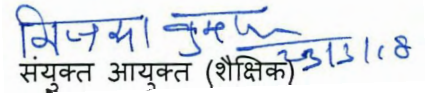 कुमार
23/3/18
संयुक्त आयुक्त (शैक्षिक)